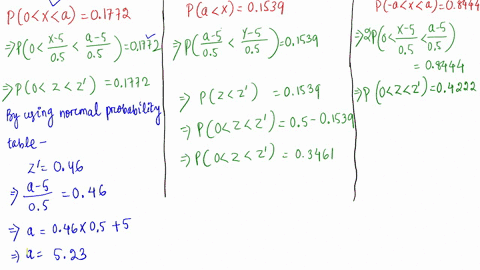 P(0<x<a) = 0.1772
⇒P(0< x-5/0.5 < a-5/0.5) = 0.1772
⇒P(0<z<z') = 0.1772
By using normal probability
table -
z' = 0.46
⇒ a-5/0.5 = 0.46
⇒ a = 0.46×0.5 +5
⇒ a = 5.23
P(a<x) = 0.1539
⇒P(a-5/0.5 < x-5/0.5) = 0.1539
⇒ P(z<z') = 0.1539
⇒P(0<z<z') = 0.5-0.1539
⇒P(0<z<z') = 0.3461
P(-a<x<a) = 0.8444
⇒2P(0< x-5/0.5 < a-5/0.5)
= 0.8444
⇒P(0<z<z') = 0.4222